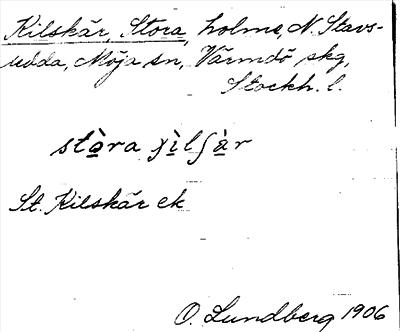 Kilskär, Stora, holme, N. Stavs-
udda, Möja sn, Värmdö skg,
Stockh. l.
stòra ʃìlʃàr
St. Kilskär ek
O. Lundberg 1906